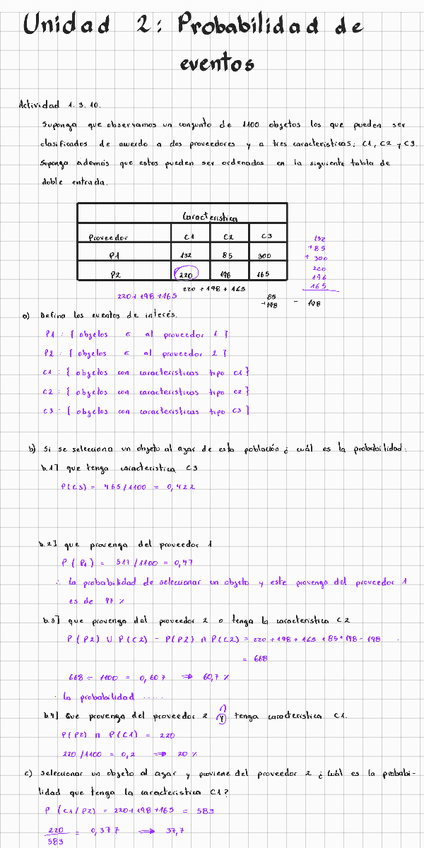 Unidad 2: Probabilidad de
eventos
Actividad 1.3.10.
Suponga que observamos un conjunto de 1100 objetos los que pueden ser
clasificados de acuerdo a dos proveedores y a tres características; C1, C2 y C3.
Suponga además que estos pueden ser ordenados en la siguiente tabla de
doble entrada.
Característica
Proveedor C1 C2 C3
P1 132 85 300
P2 220 198 165
132
+ 85
+ 300
220
198
165
220 + 198 + 165
220 + 198 + 165
85
+198 - 198
a) Defina los eventos de interés.
P1 : { objetos ∈ al proveedor 1 }
P2 : { objetos ∈ al proveedor 2 }
C1 : { objetos con características tipo C1 }
C2 : { objetos con características tipo C2 }
C3 : { objetos con características tipo C3 }
b) Si se selecciona un objeto al azar de esta población ¿ cuál es la probabilidad:
b.1] que tenga característica C3
P(C3) = 465/1100 = 0,422
b.2] que provenga del proveedor 1
P(P1) = 517/1100 = 0,47
∴ la probabilidad de seleccionar un objeto y este provenga del proveedor 1
es de 47 %
b.3] que provenga del proveedor 2 o tenga la característica C2
P(P2) U P(C2) - P(P2) ∩ P(C2) = 220 + 198 + 165 + 85 + 198 - 198
= 668
668 ÷ 1100 = 0,607 ⇒ 60,7 %
∴ la probabilidad .....
b.4] Que provenga del proveedor 2 y tenga característica C1.
∩
P(P2) ∩ P(C1) = 220
220/1100 = 0,2 ⇒ 20 %
c) seleccionar un objeto al azar y proviene del proveedor 2 ¿ Cuál es la probabi-
lidad que tenga la característica C1?
P (C1/P2) = 220+198+165 = 583
220
583
= 0,377 ⇒ 37,7